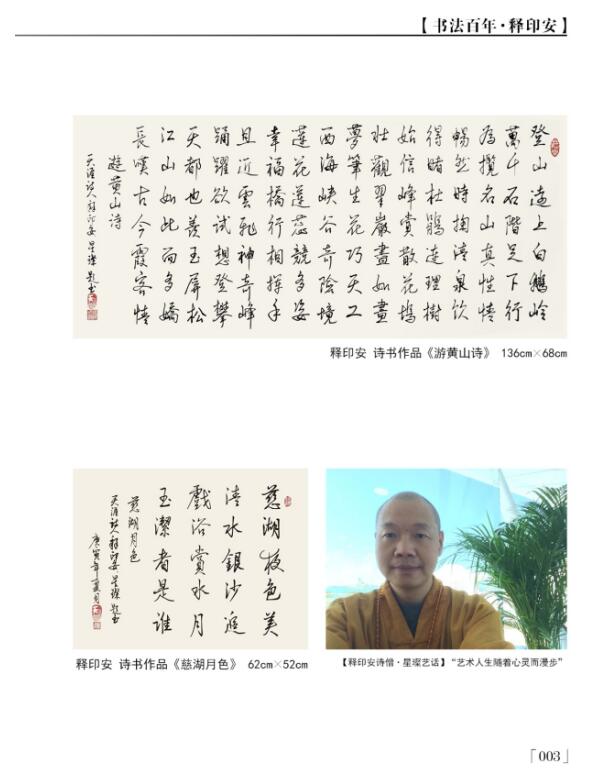 【书法百年·释印安】
登山遠上白鵝嶺
萬千石階足下行
為攬名山真性情
暢然時掬清泉飲
得睹杜鵑連理樹
始信峰賞散花塢
壯觀翠巖盡如畫
夢筆生花巧天工
西海峽谷奇險境
蓮花蓮蕊競多姿
幸福橋行相手
且近雲飛神奇峰
踴躍欲試想登攀
天都也羨玉屏松
江山如此而多嬌
長嘆古今霞客情
遊黃山詩
天涯詩人釋印安 星璨 題書
释印安 诗书作品《游黄山诗》 136cm×68cm
慈湖夜色美
清水銀沙
戲浴賞水月
玉潔者是誰
慈湖月色
天涯詩人釋印安 星璨 題書
庚寅年夏月
释印安 诗书作品《慈湖月色》 62cm×52cm
【释印安诗僧·星璨艺话】“艺术人生随着心灵而漫步”
「003」